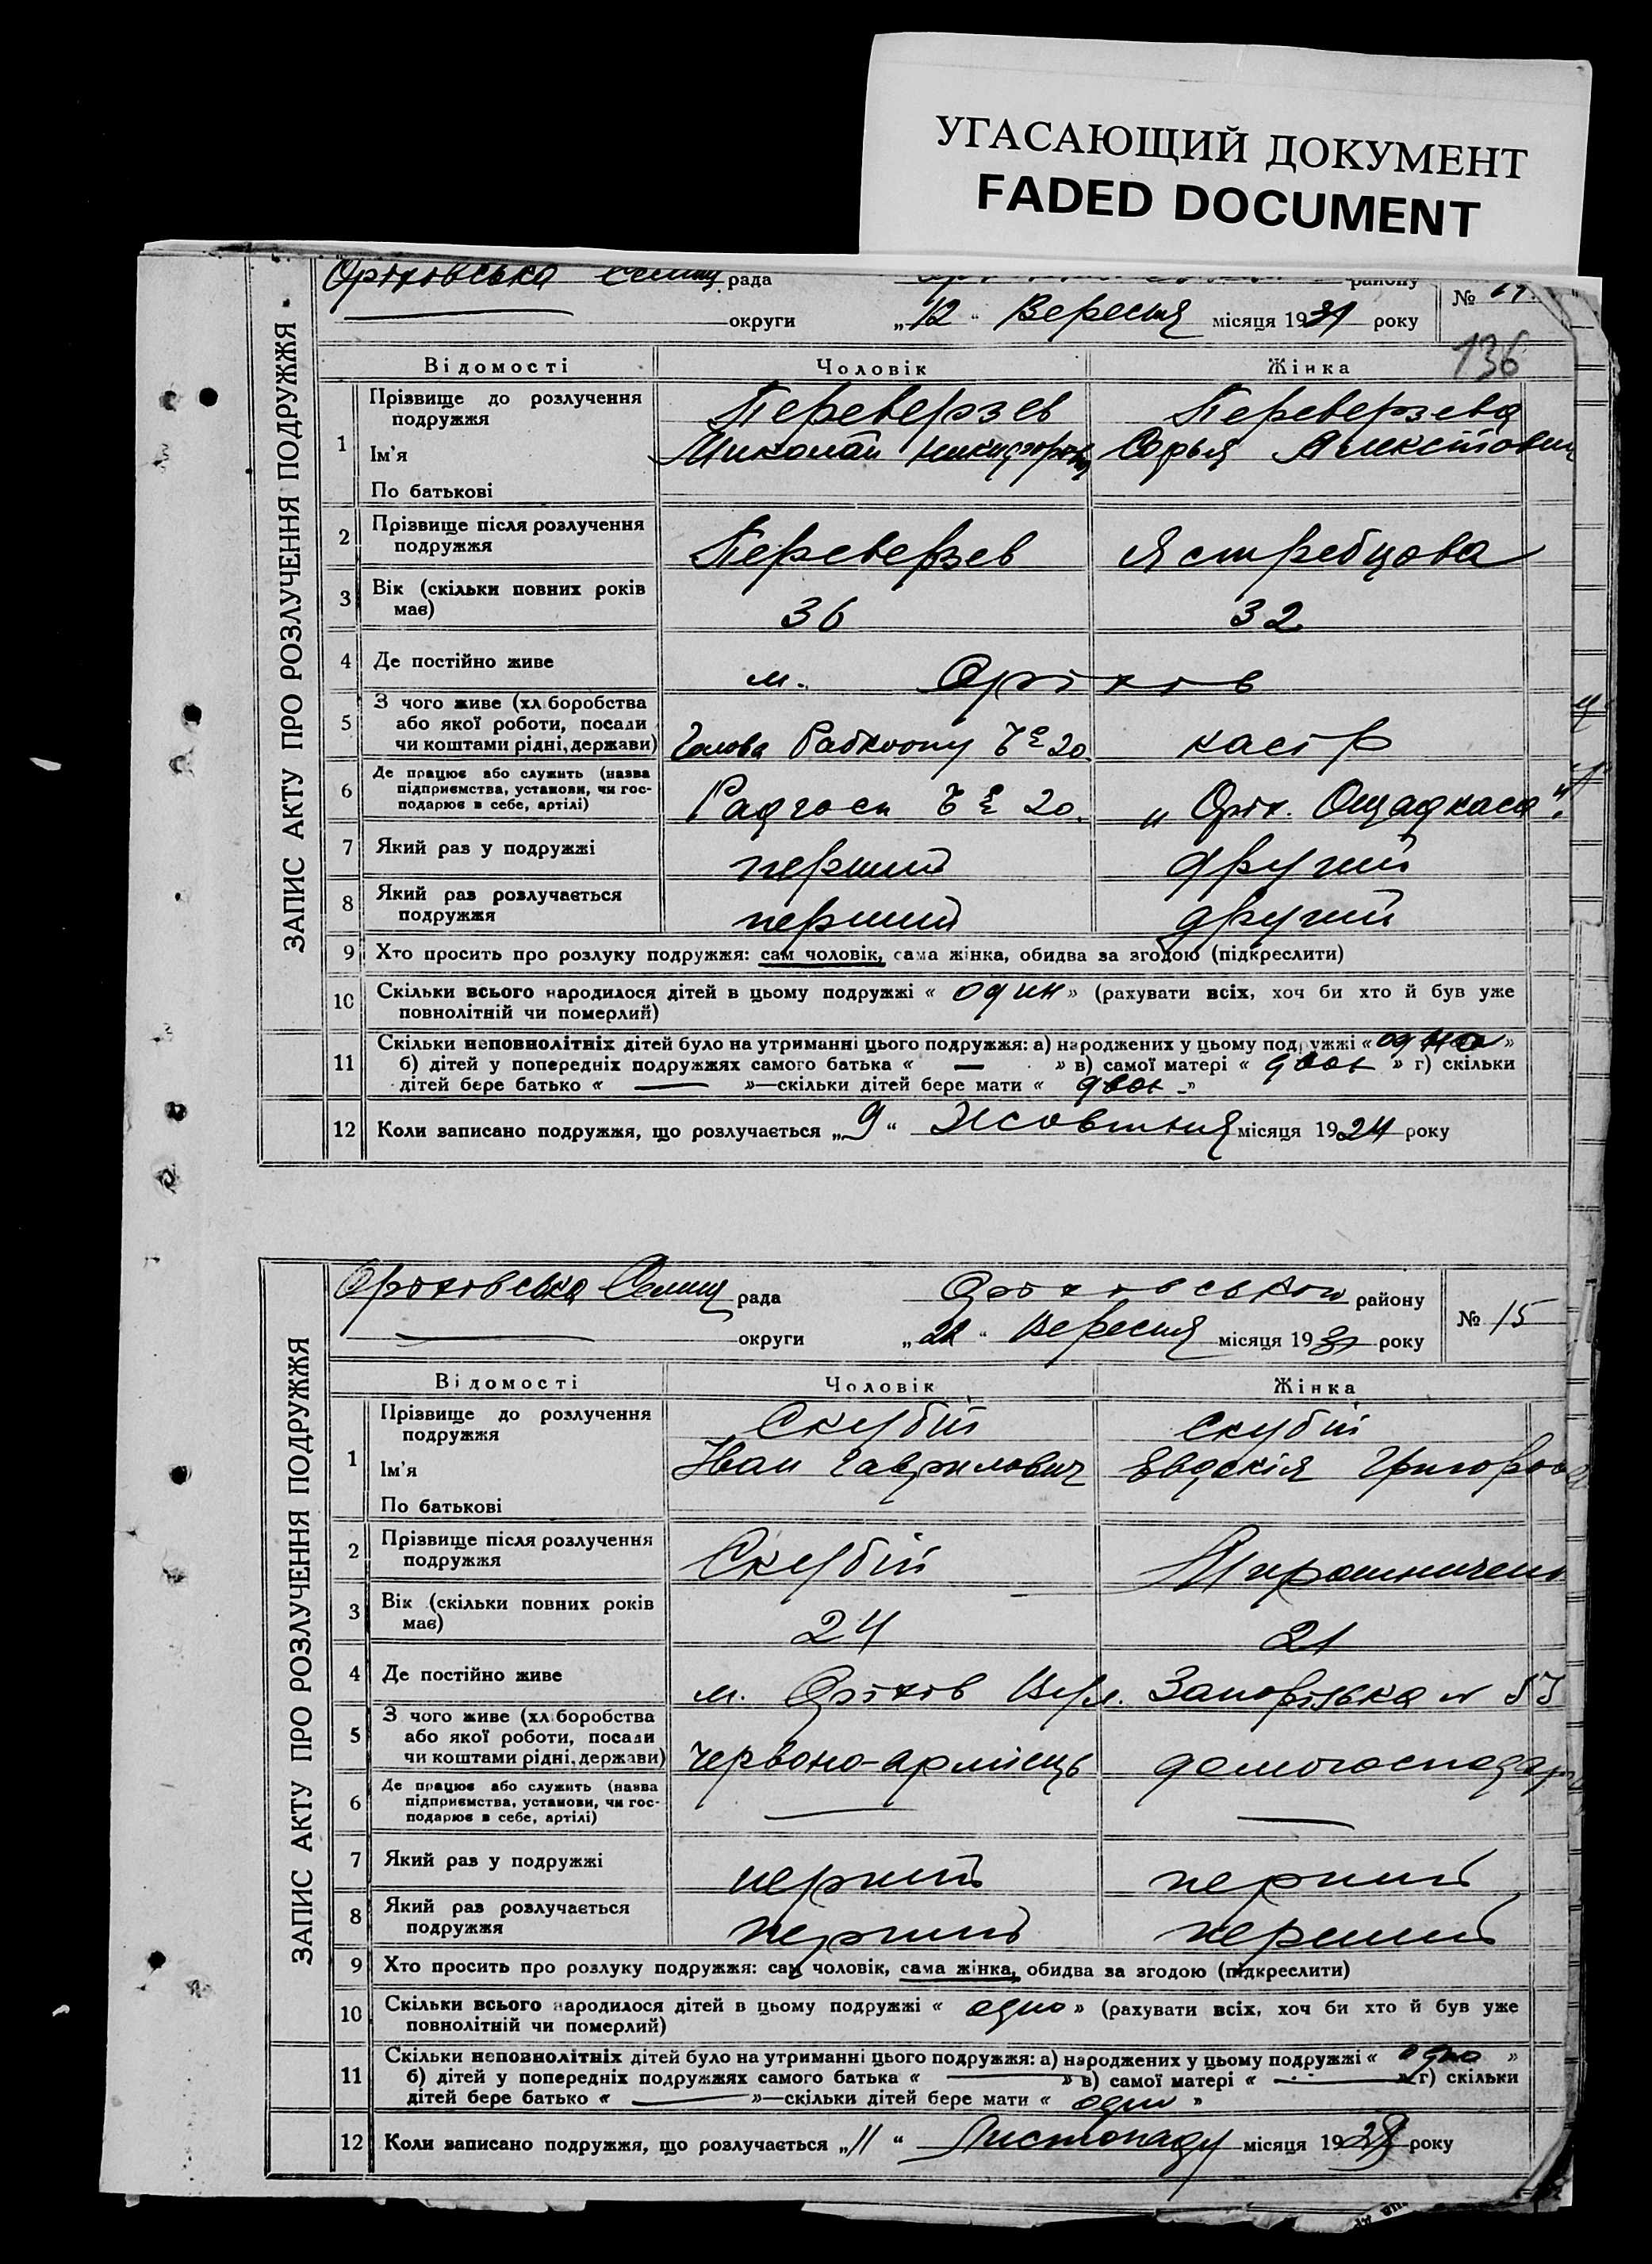 УГАСАЮЩИЙ ДОКУМЕНТ
FADED DOCUMENT
ЗАПИС АКТУ ПРО РОЗЛУЧЕННЯ ПОДРУЖЖЯ
Оріховська Селищ рада району №
округи „12“ Вересня місяця 1931 року
136
Відомості Чоловік Жінка
1 Прізвище до розлучення подружжя Переверзев Переверзева
Ім'я Миколай Софья
По батькові
2 Прізвище після розлучення подружжя Переверзев Ястребцова
3 Вік (скільки повних років має) 36 32
4 Де постійно живе м. Оріхов
5 З чого живе (хл боробства або якої роботи, посади чи коштами рідні, держави) Голова Рабкоопу 20. касір
6 Де працює або служить (назва підприємства, установи, чи господарює в себе, артілі) Радгосп 20. „Оріх. Ощадкаса“.
7 Який раз у подружжі перший другий
8 Який раз розлучається подружжя перший другий
9 Хто просить про розлуку подружжя: сам чоловік, сама жінка, обидва за згодою (підкреслити)
10 Скільки всього народилося дітей в цьому подружжі « один » (рахувати всіх, хоч би хто й був уже
повнолітній чи померлий)
11 Скільки неповнолітніх дітей було на утриманні цього подружжя: а) народжених у цьому подружжі « одна »
б) дітей у попередніх подружжях самого батька « — » в) самої матері « двох » г) скільки
дітей бере батько « — »—скільки дітей бере мати « двох »
12 Коли записано подружжя, що розлучається „9“ Жовтня місяця 1924 року
ЗАПИС АКТУ ПРО РОЗЛУЧЕННЯ ПОДРУЖЖЯ
Оріховська Селищ рада Оріховської району № 15
округи Вересня місяця 1931 року
Відомості Чоловік Жінка
1 Прізвище до розлучення подружжя Скубій Скубій
Ім'я Іван Гаврилович Евдокія Григоров
По батькові
2 Прізвище після розлучення подружжя Скубій Мирошничен
3 Вік (скільки повних років має) 24 21
4 Де постійно живе м. Оріхов Запорізька № 53
5 З чого живе (хл боробства або якої роботи, посади чи коштами рідні, держави) Червоно-армієць домогосподар
6 Де працює або служить (назва підприємства, установи, чи господарює в себе, артілі) — —
7 Який раз у подружжі перший перший
8 Який раз розлучається подружжя перший перший
9 Хто просить про розлуку подружжя: сам чоловік, сама жінка, обидва за згодою (підкреслити)
10 Скільки всього народилося дітей в цьому подружжі « одно » (рахувати всіх, хоч би хто й був уже
повнолітній чи померлий)
11 Скільки неповнолітніх дітей було на утриманні цього подружжя: а) народжених у цьому подружжі « одно »
б) дітей у попередніх подружжях самого батька « — » в) самої матері « — » г) скільки
дітей бере батько « — »—скільки дітей бере мати « одно »
12 Коли записано подружжя, що розлучається „11“ Листопаду місяця 1928 року